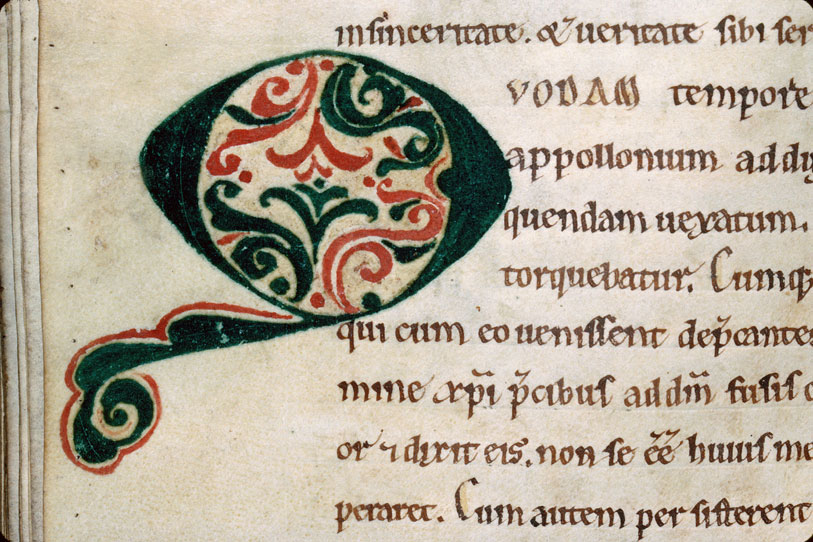 insinceritate. & ueritate sibi ser
QVODAM tempore
appollonium addu
quendam uexatum.
torquebatur. Cumq;
qui cum eo uenissent dep̄cantes
mine xp̄i p̄cibus addn̄m fusis
or ⁊ dixit eis. non se ēē huius me
peraret. Cum autem per sisterent